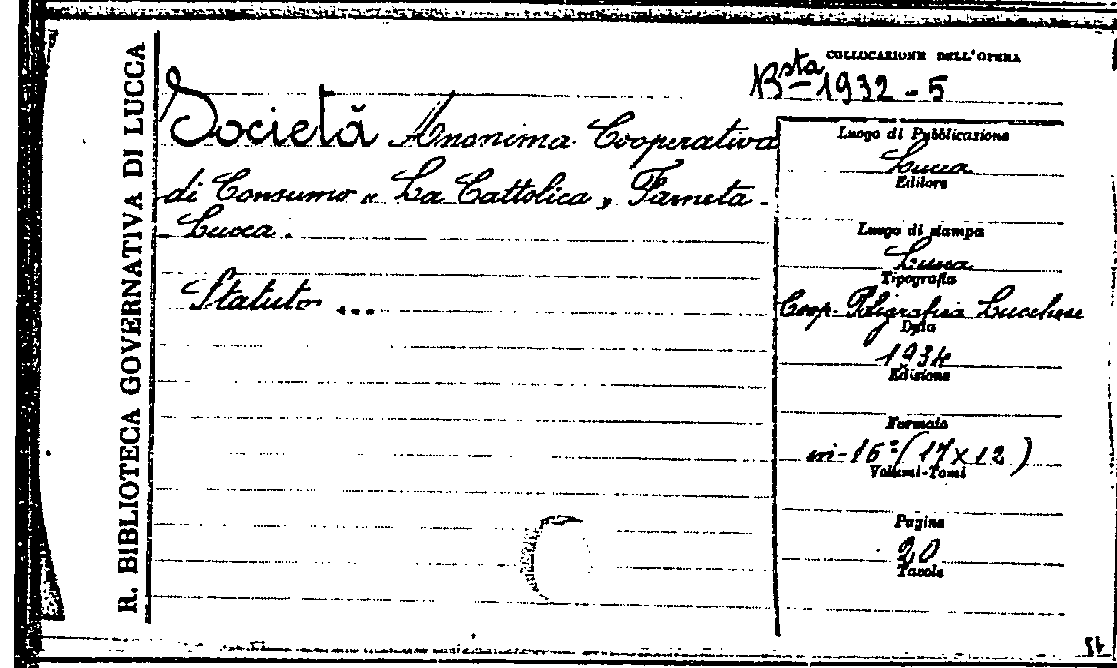 R. BIBLIOTECA GOVERNATIVA DI LUCCA
COLLOCAZIONE DELL'OPERA
Bsta 1932-5
Società Anonima Cooperativa
di Consumo "La Cattolica", Farneta-
Lucca.
Statuto ...
Luogo di Pubblicazione
Lucca
Editore
Luogo di stampa
Lucca
Tipografia
Coop. Poligrafica Lucchese
Data
1934
Edizione
Formato
in-16° (17x12)
Volumi-Tomi
Pagine
20
Tavole